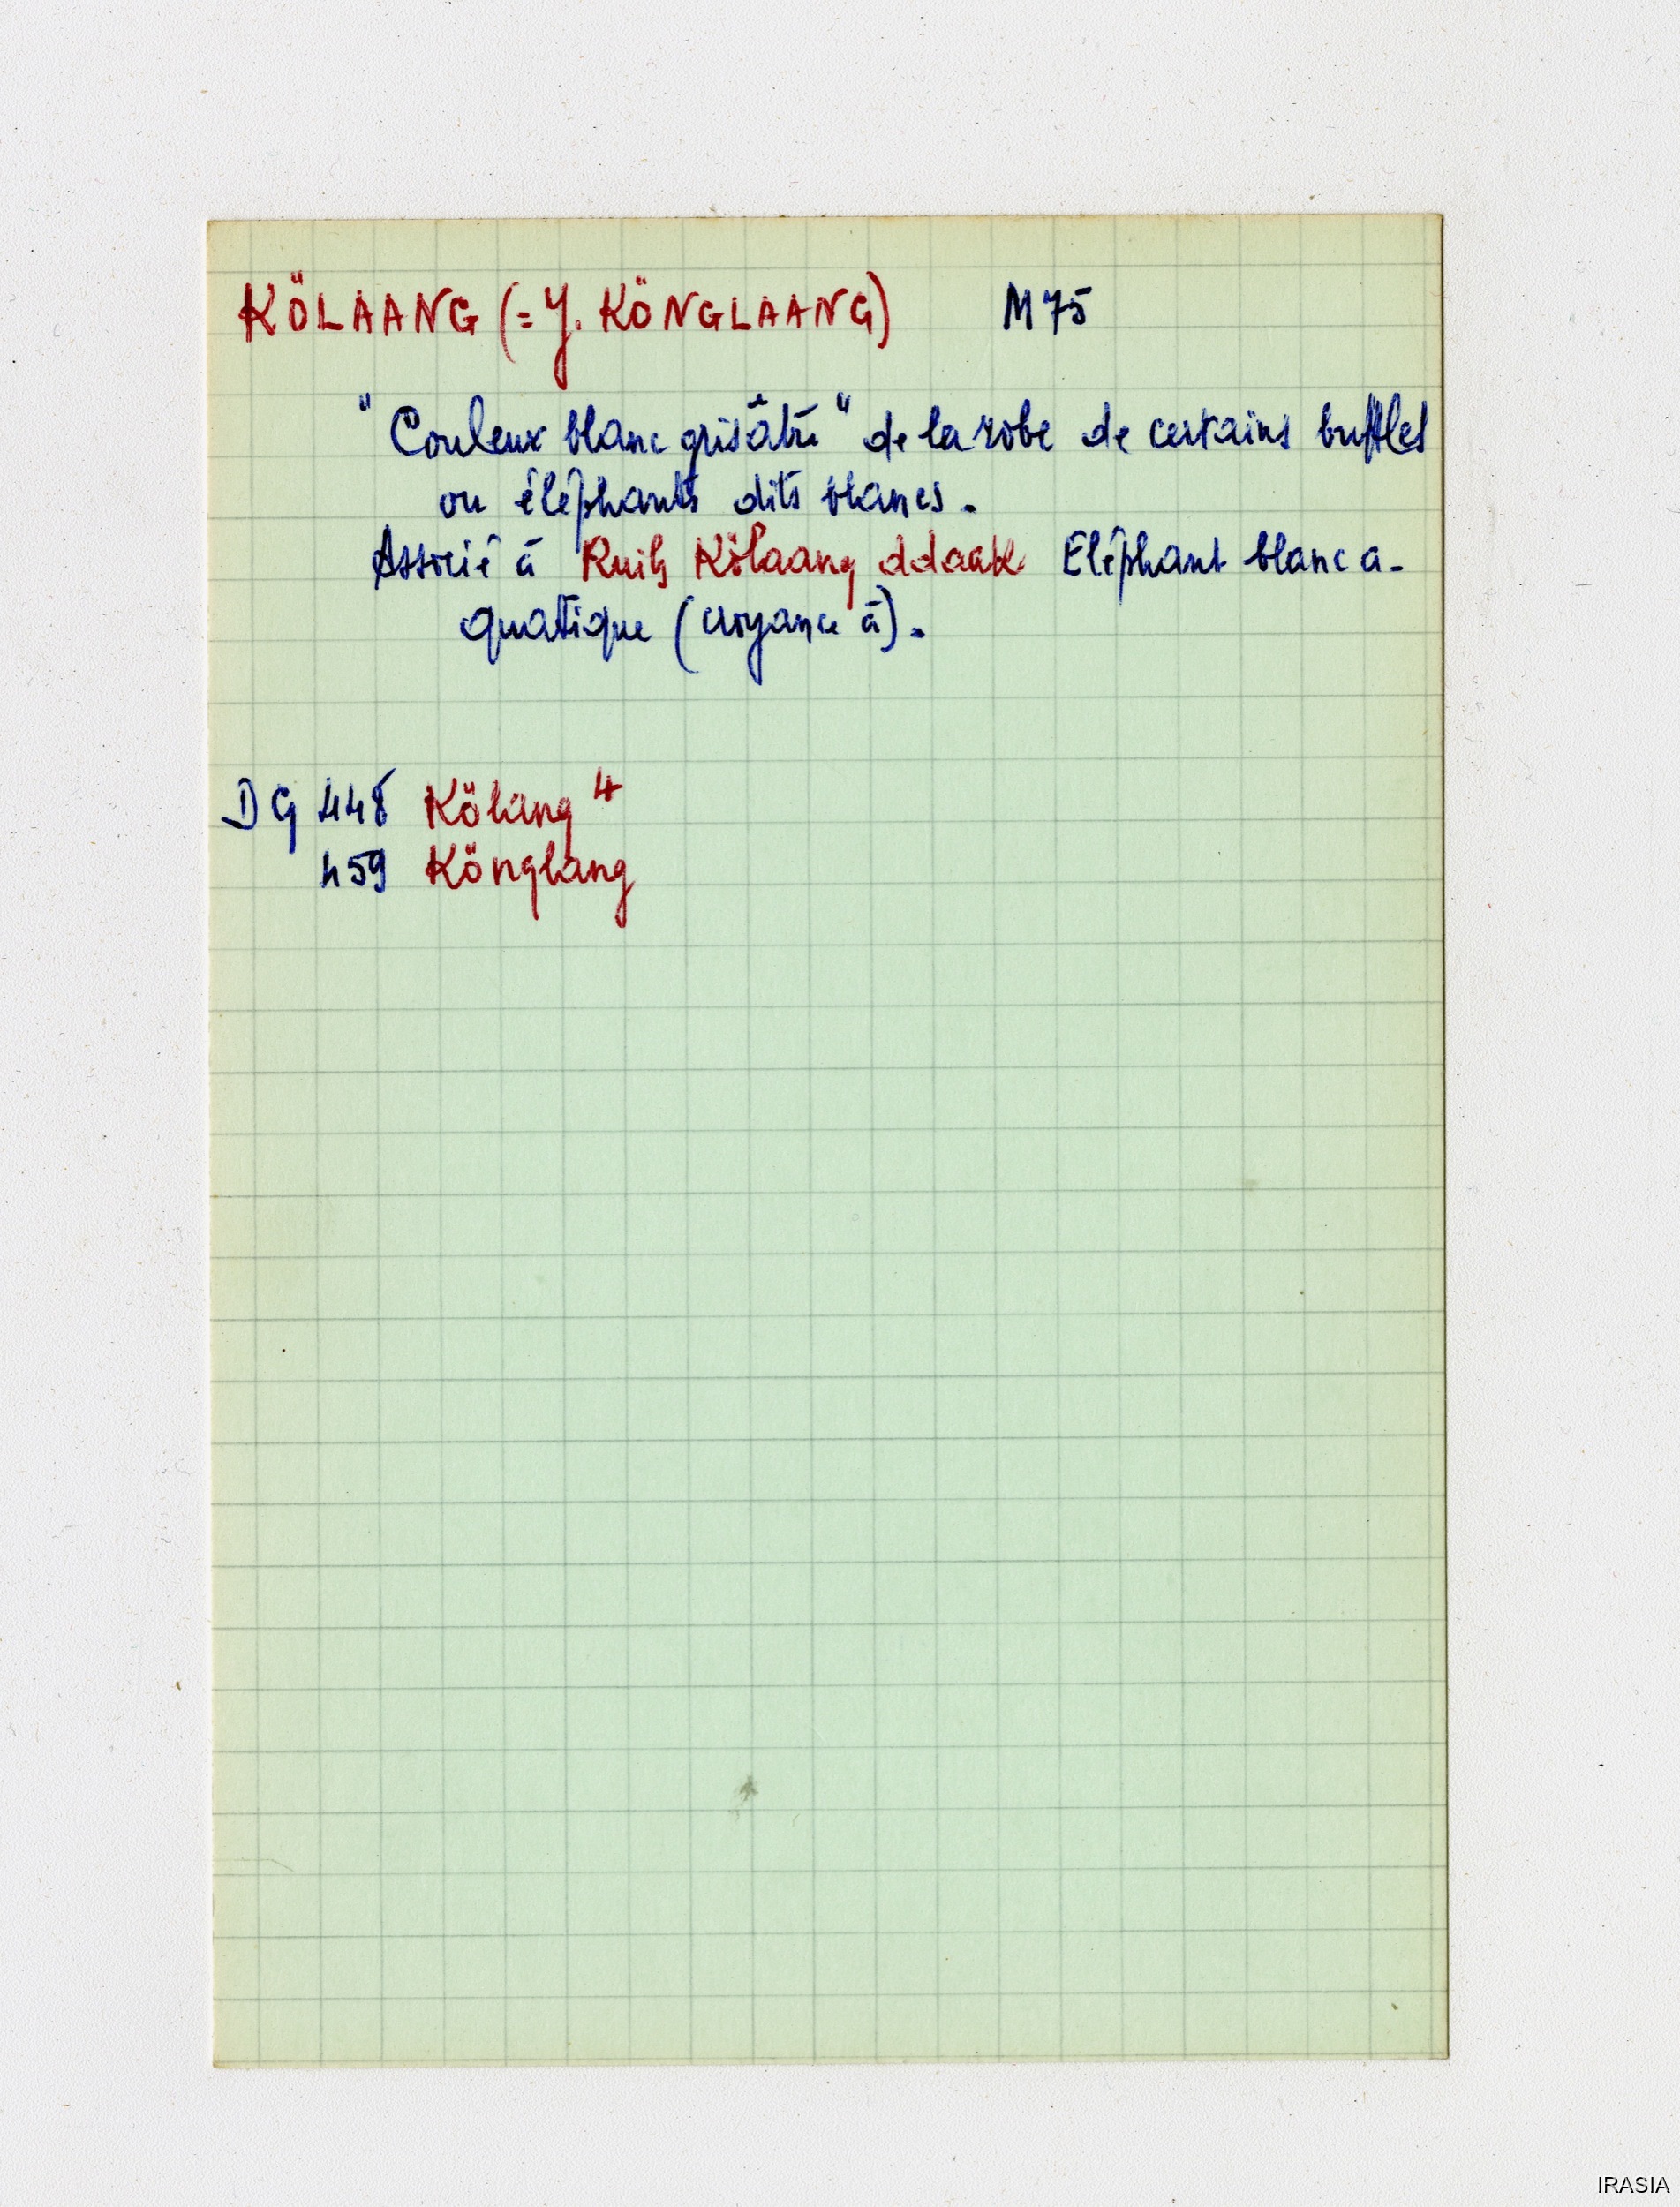 KÖLAANG (= Y. KÖNGLAANG) M 75
"Couleur blanc grisâtre" de la robe de certains buffles
ou éléphants dits blancs.
Associé à Ruih Kölaang ddaak Eléphant blanc a-
quatique (croyance à).
DG 448 Kölang 4
459 Könglang
IRASIA